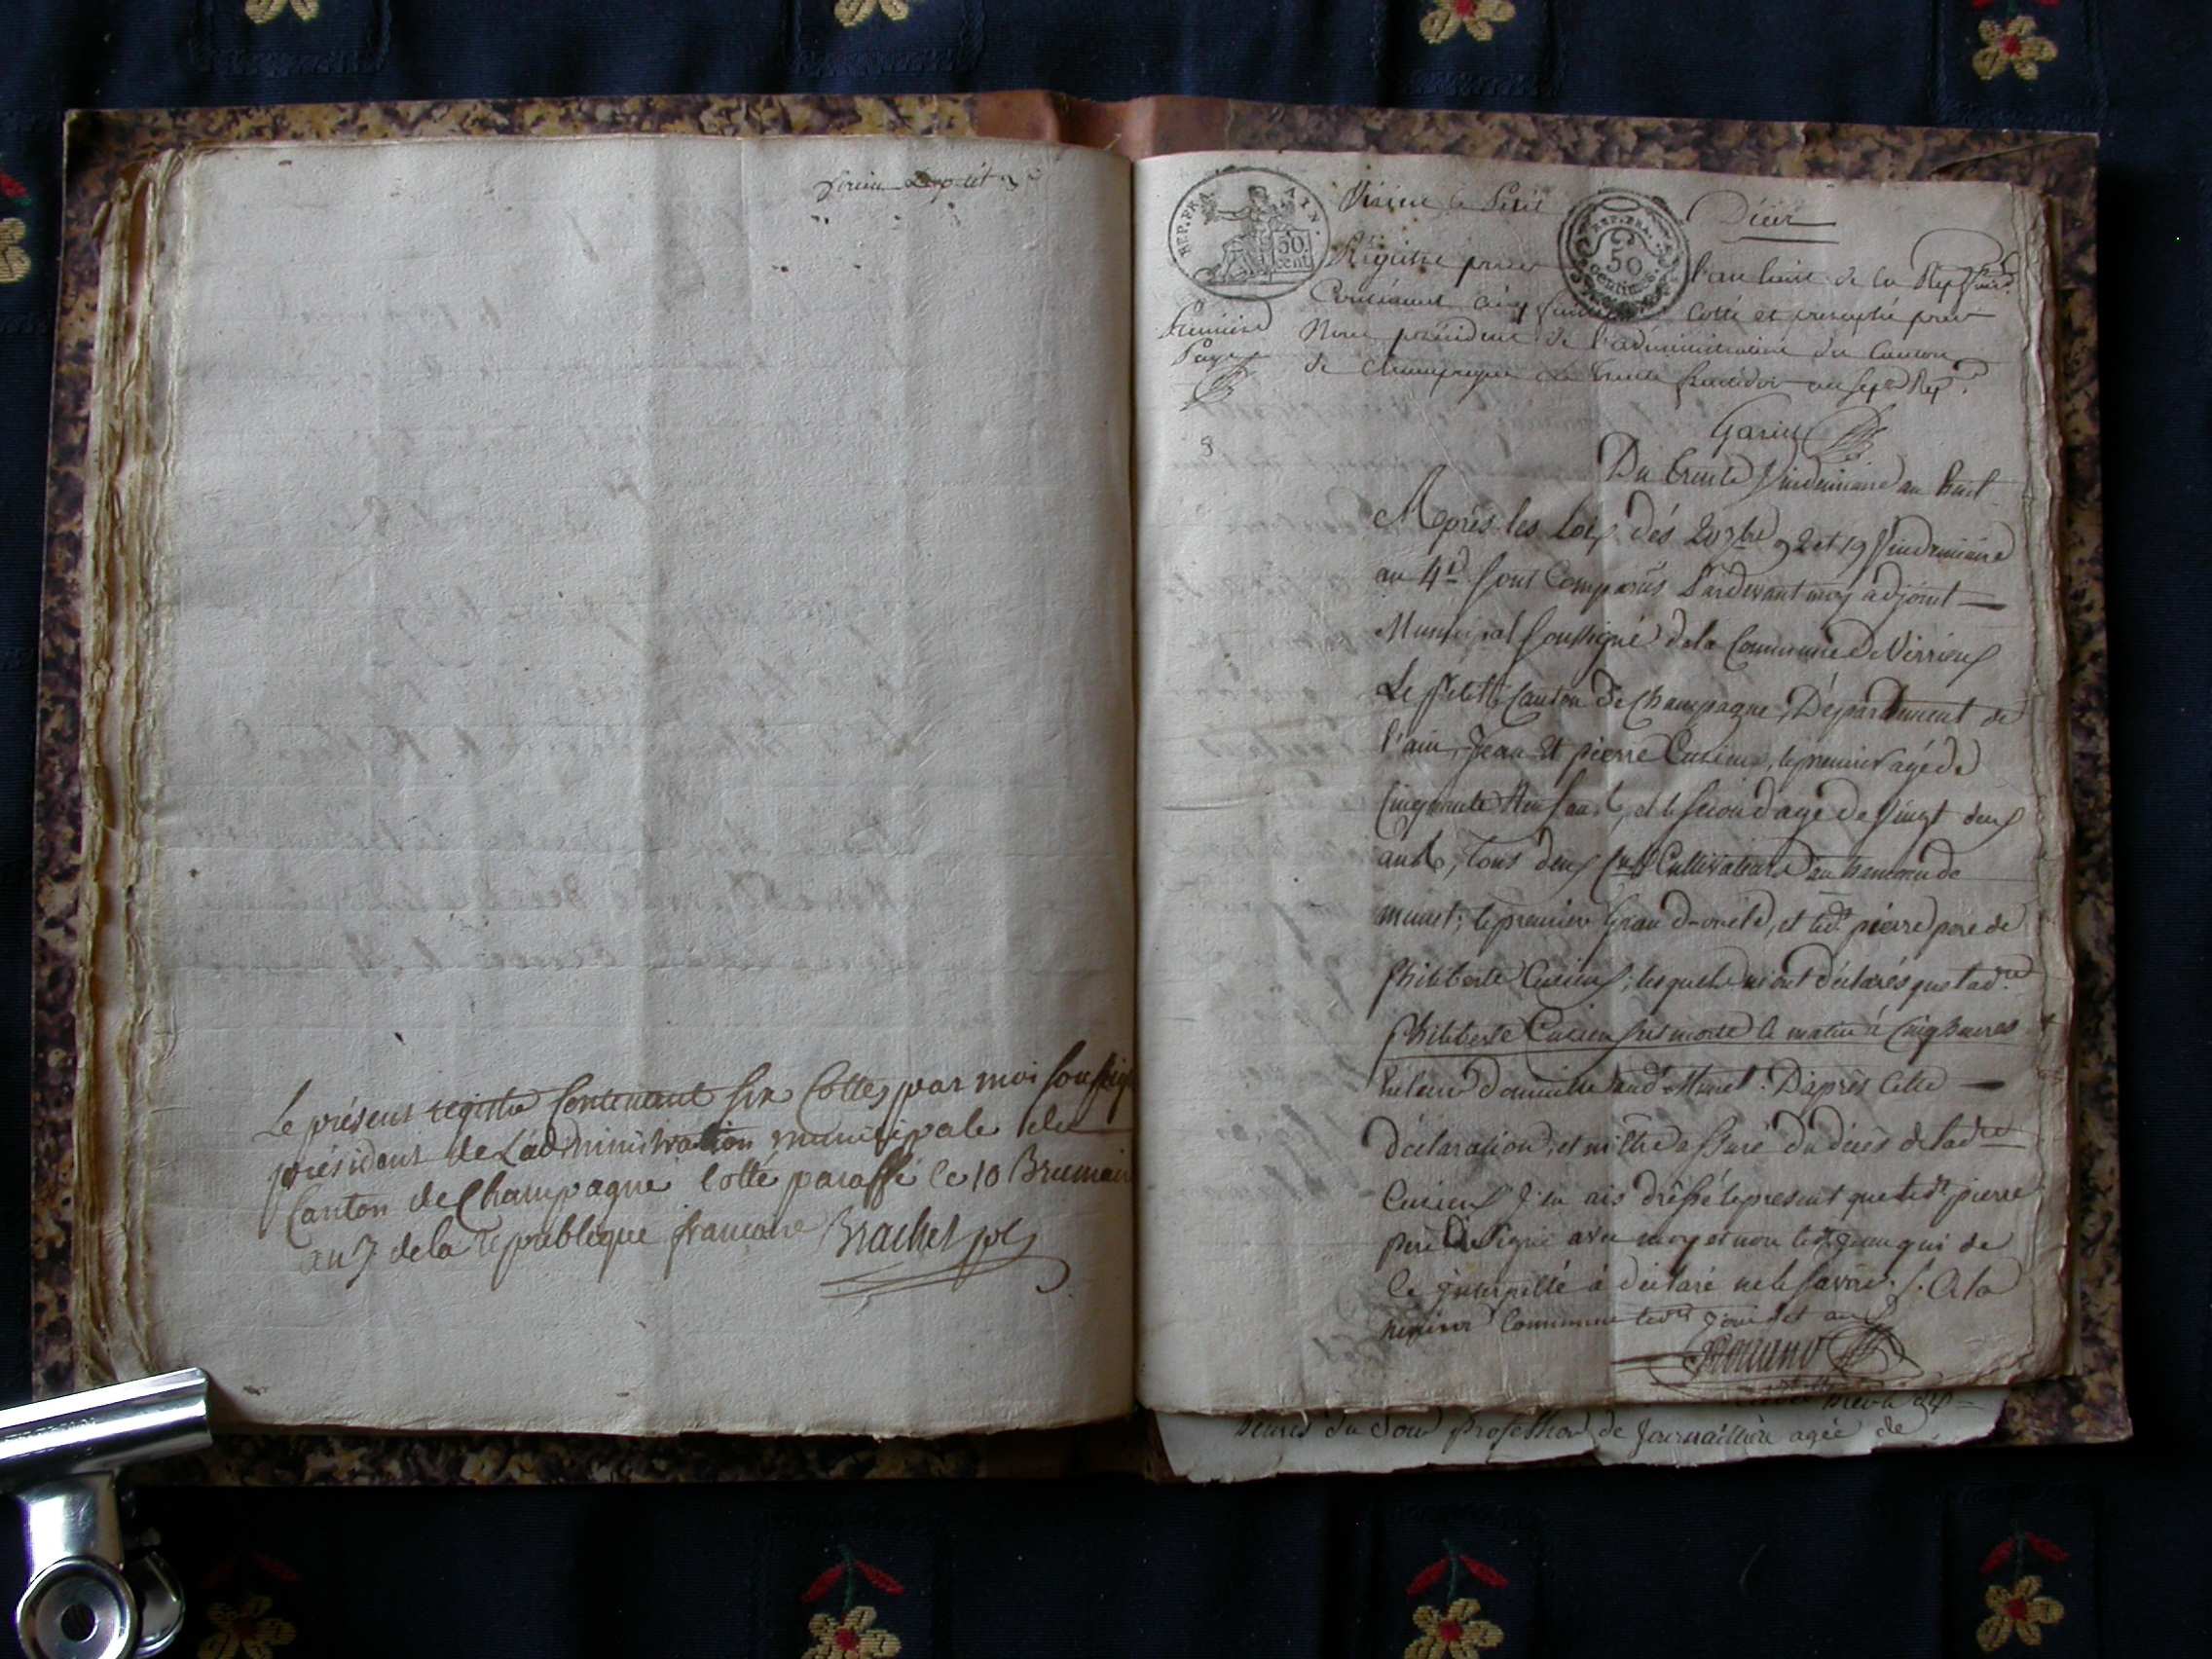 Virieu Le petit
Le présent registre Contenant six Cottes par moi soussign
président de L'administration municipale du
Canton de Champagne cotté paraffé le 10 Brumair
an 7 de la republique francaise Brachet pt
REP. FRA. AIN.
50 cent
Virieu le Petit
REP. FRA.
50 centimes
Décès
Registre pour l'an huit de la Rep
Contenant cinq feuillets Cotté et paraphé par
Nous président de l'administration du Canton
de Champagne le trente fructidor an sept Rep
Première
Page
Garin
8
Du trente Vindemiaire an huit
Après les Loix des 20 7bre 92 et 19 Vindemiaire
an 4e sont Comparus Pardevant moy adjoint
Municipal soussigné de la Commune de Virrieux
Le petit, Canton de Champagne, Département de
l'ain, Jean et pierre Cusieux, le premier agé de
Cinquante ans, et le second agé de vingt deux
ans, tous deux Cultivateurs au hameau de
munet; le premier Grand-oncle, et led. pierre pere de
philiberte Cusieux; lesquels m'ont déclarés que lad.
philiberte Cusieux est morte le matin à Cinq heures
en leur domicile aud. Munet. D'après Cette
déclaration, et m'être assuré du décès de lad.
Cusieux J'en ais dressé le present que led. pierre
père a Signé avec moy et non led. Jean qui de
Ce interpellé à déclaré ne le savoir. f. A la
susdite Commune les jour et an
heures du soir profession de Journaillière agée de